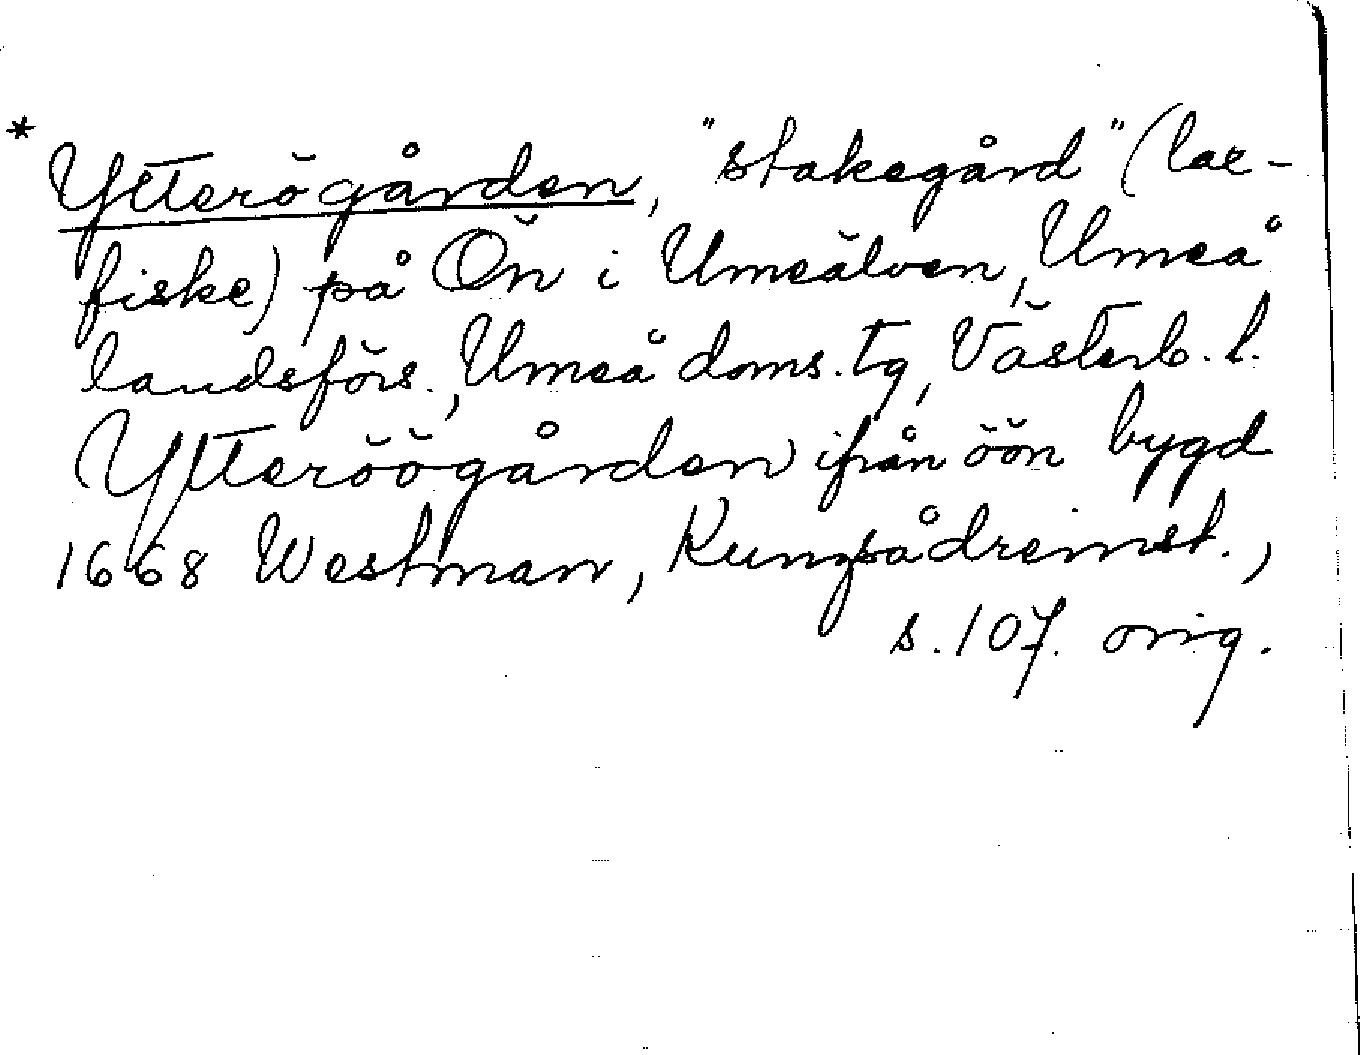 * Ytterögården, "stakegård" (lax-
fiske) på Ön i Umeälven, Umeå
landsförs., Umeå doms. tg, Västerb. l.
Ytteröögården ifrån öön bygd
1668 Westman, Kungsådreinst.,
s. 107. orig.